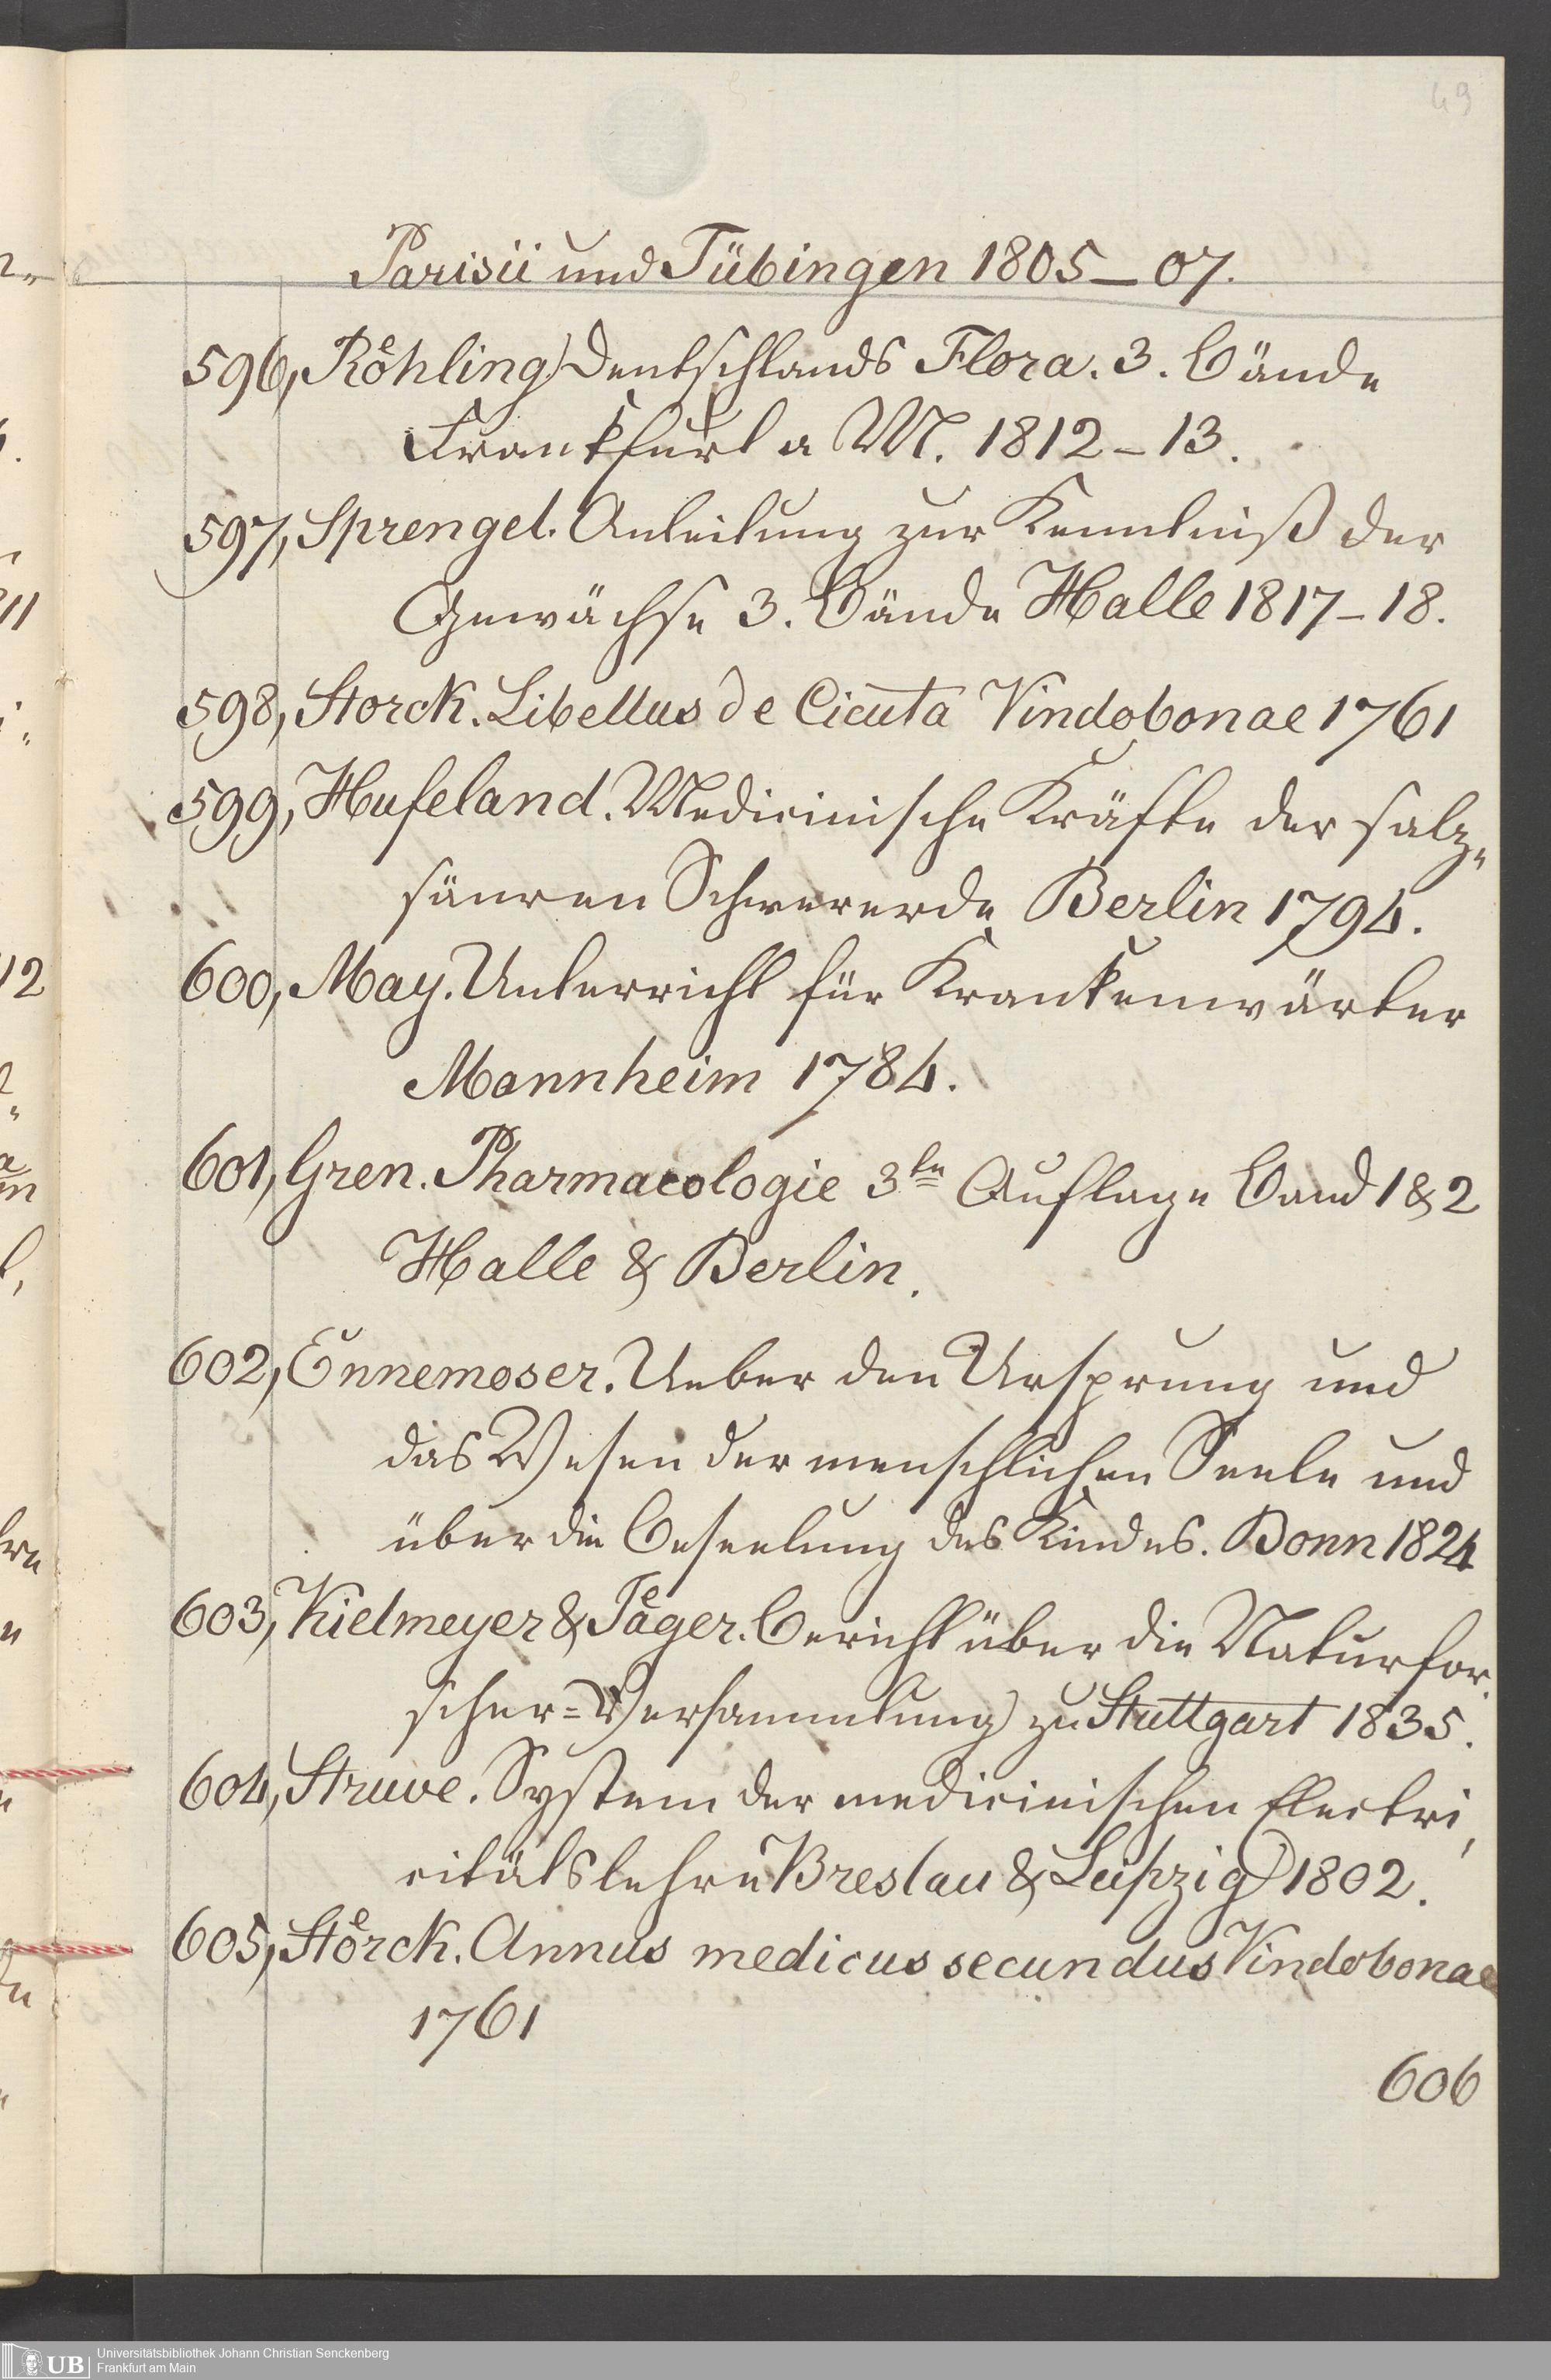 49
Parisii und Tübingen 1805-07.
596, Röhling Deutschlands Flora. 3. Bände
Frankfurt a M. 1812-13.
597, Sprengel. Anleitung zur Kenntniß der
Gewächse 3. Bände Halle 1817-18.
598, Storck. Libellus de Cicuta Vindobonae 1761
599, Hufeland. Medicinische Kräfte der salz„
säuren Schwererde Berlin 1794.
600, May. Unterricht für Krankenwärter
Mannheim 1784.
601, Gren. Pharmacologie 3te Auflage Band 1 & 2
Halle & Berlin.
602, Ennemoser. Ueber den Ursprung und
das Wesen der menschlichen Seele und
über die Beseelung des Kindes. Bonn 1824
603, Kielmeyer & Jäger. Bericht über die Naturfor„
scher=Versammlung zu Stuttgart 1835.
604, Struve. System der medicinischen Electri„
citätslehre Breslau & Leipzig 1802.
605, Störck. Annus medicus secundus Vindobonae
1761
606
UB
Universitätsbibliothek Johann Christian Senckenberg
Frankfurt am Main